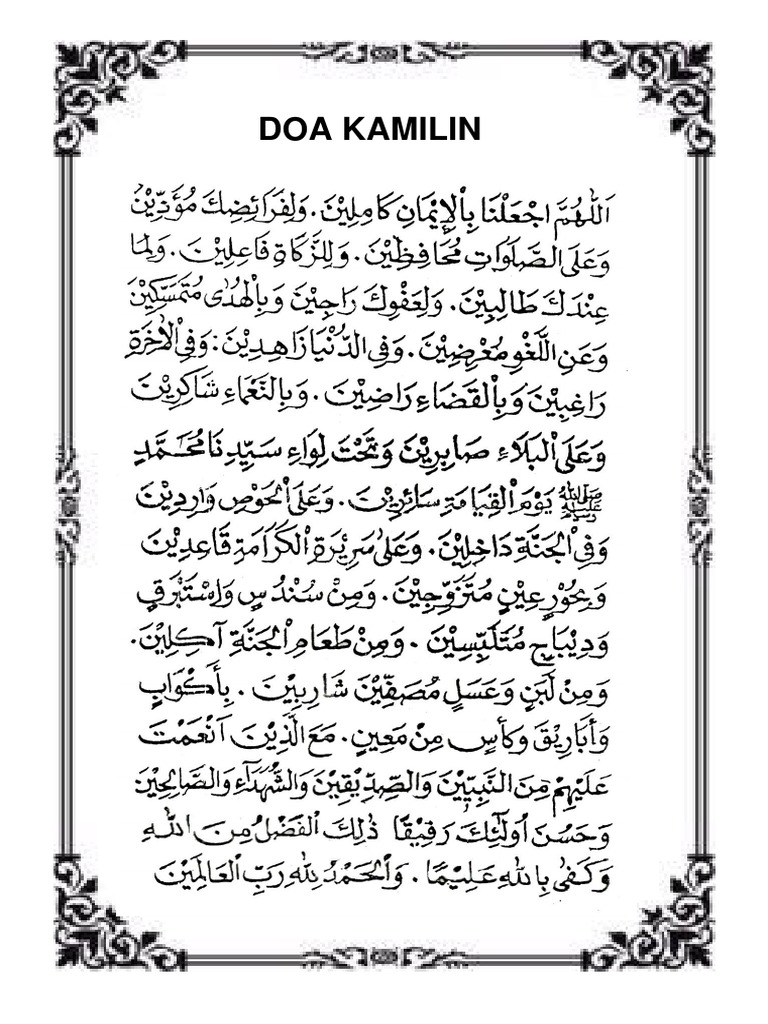 DOA KAMILIN
اَللّٰهُمَّ اجْعَلْنَا بِاْلإِيْمَانِ كَامِلِيْنَ. وَلِفَرَائِضِكَ مُؤَدِّيْنَ
وَعَلَى الصَّلَوَاتِ مُحَافِظِيْنَ. وَلِلزَّكَاةِ فَاعِلِيْنَ. وَلِمَا
عِنْدَكَ طَالِبِيْنَ. وَلِعَفْوِكَ رَاجِيْنَ وَبِالْهُدٰى مُتَمَسِّكِيْنَ
وَعَنِ اللَّغْوِ مُعْرِضِيْنَ. وَفِى الدُّنْيَا زَاهِدِيْنَ: وَفِى اْلأٰخِرَةِ
رَاغِبِيْنَ وَبِاْلقَضَاءِ رَاضِيْنَ. وَبِالنَّعْمَاءِ شَاكِرِيْنَ
وَعَلَى اْلبَلَاءِ صَابِرِيْنَ وَتَحْتَ لِوَاءِ سَيِّدِنَا مُحَمَّدٍ
ﷺ يَوْمَ اْلقِيَامَةِ سَائِرِيْنَ. وَعَلَى اْلحَوْضِ وَارِدِيْنَ
وَفِى اْلجَنَّةِ دَاخِلِيْنَ. وَعَلَى سَرِيْرَةِ اْلكَرَامَةِ قَاعِدِيْنَ
وَبِحُوْرٍعِيْنٍ مُتَزَوِّجِيْنَ. وَمِنْ سُنْدُسٍ وَاِسْتَبْرَقٍ
وَدِيْبَاجٍ مُتَلَبِّسِيْنَ. وَمِنْ طَعَامِ اْلجَنَّةِ آكِلِيْنَ.
وَمِنْ لَبَنٍ وَعَسَلٍ مُصَفَّيْنَ شَارِبِيْنَ. بِأَكْوَابٍ
وَأَبَارِيْقَ وَكَأْسٍ مِنْ مَعِيْنٍ. مَعَ الَّذِيْنَ اَنْعَمْتَ
عَلَيْهِمْ مِنَ النَّبِيِّيْنَ وَالصِّدِّيْقِيْنَ وَالشُّهَدَاءِ وَالصَّالِحِيْنَ
وَحَسُنَ أُولٰئِكَ رَفِيْقًا ذٰلِكَ اْلفَضْلُ مِنَ اللّٰهِ
وَكَفٰى بِاللّٰهِ عَلِيْمًا. وَاْلحَمْدُ لِلّٰهِ رَبِّ اْلعَالَمِيْنَ